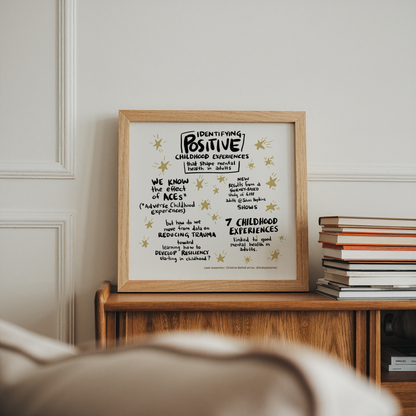 IDENTIFYING
POSITIVE
CHILDHOOD EXPERIENCES
that shape mental
health in adults
WE KNOW
the effect
of ACEs*
(*Adverse Childhood
Experiences)
but how do we
move from data on
REDUCING TRAUMA
toward
learning how to
DEVELOP RESILIENCY
starting in childhood?
NEW
Results from a
study of 6188
adults @ Johns Hopkins
SHOWS
7 CHILDHOOD
EXPERIENCES
linked to good
mental health in
adults.